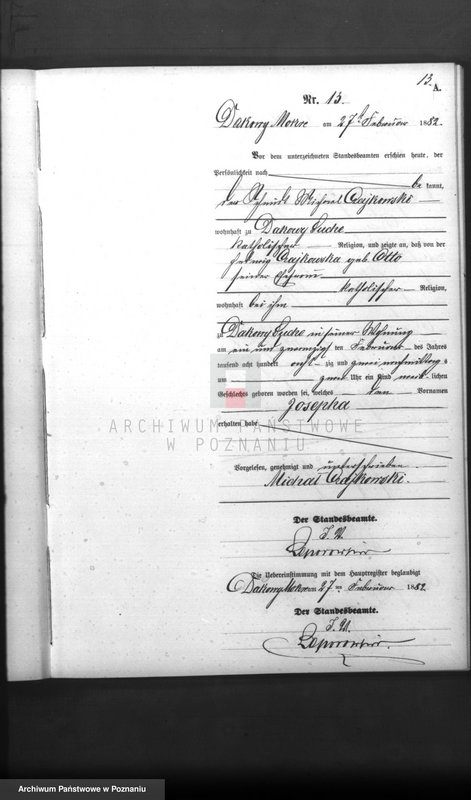 13.
A.
Nr. 13.
Dakowy Mokre am 27. Februar 1882.
Vor dem unterzeichneten Standesbeamten erschien heute, der
Persönlichkeit nach
be kannt,
der Schmidt Michael Czajkowski
wohnhaft zu Dakowy Suche
katholischer Religion, und zeigte an, daß von der
Hedwig Czajkowska geb. Otto
seiner Ehefrau
katholischer Religion,
wohnhaft bei ihm
zu Dakowy Suche in seiner Wohnung
am ein und zwanzigsten Februar des Jahres
tausend acht hundert acht zig und zwei
um zwei Uhr ein Kind weib lichen
Geschlechts geboren worden sei, welches den Vornamen
Josepha
erhalten habe
Vorgelesen, genehmigt und unterschrieben
Michał Czajkowski.
Der Standesbeamte.
I. V.
Die Uebereinstimmung mit dem Hauptregister beglaubigt
Dakowy Mokre am 27 ten Februar 1882.
Der Standesbeamte.
I. V.
ARCHIWUM PAŃSTWOWE
W POZNANIU
Archiwum Państwowe w Poznaniu